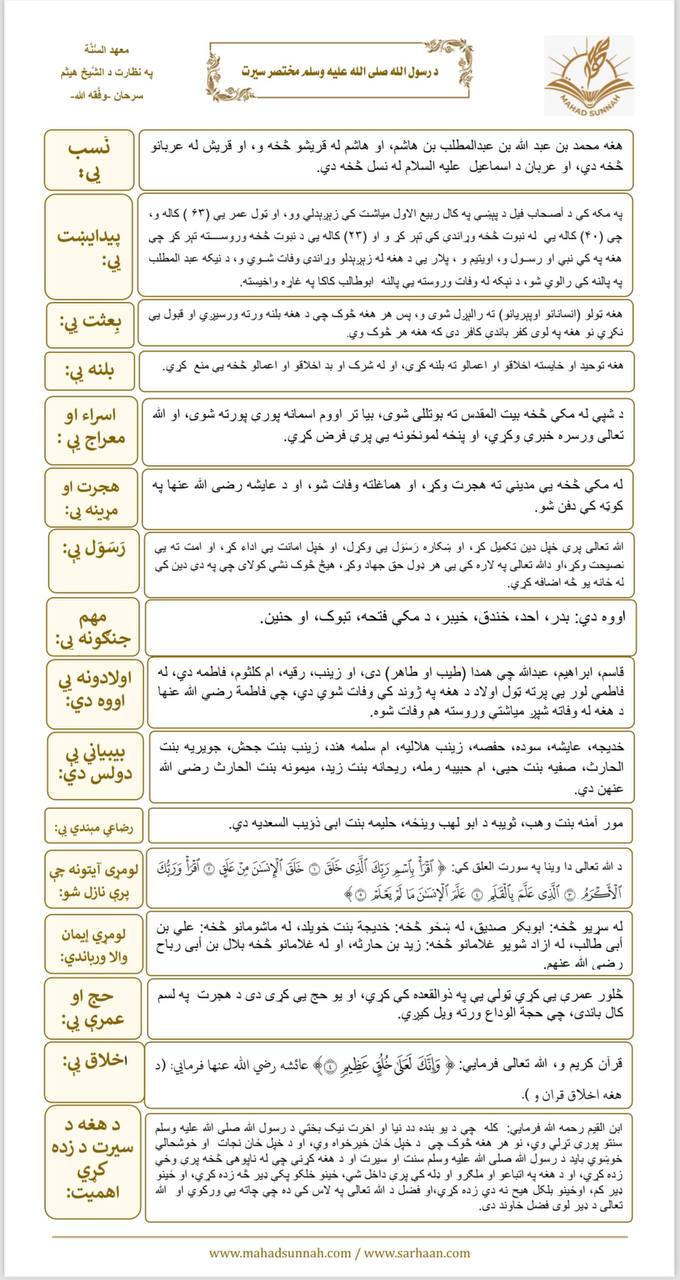 معهد السُّنَّة
په نظارت د الشَّیخ هیثم
سرحان -وفَّقه الله-
د رسول الله صلی الله علیه وسلم مختصر سیرت
MAHAD SUNNAH
نَسب
یې:
هغه محمد بن عبد الله بن عبدالمطلب بن هاشم، او هاشم له قریشو څخه و، او قریش له عربانو
څخه دي، او عربان د اسماعیل علیه السلام له نسل څخه دي.
پیدایښت
یې:
په مکه کي د أصحاب فیل د پېښي په کال ربیع الاول میاشت کي زېږېدلي وو، او ټول عمر یې (۶۳ ) کاله و،
چي (۴۰) کاله یې له نبوت څخه وړاندي کي تېر کړ و او (۲۳) کاله یې د نبوت څخه وروسته تېر کړ چي
هغه په کي نبي او رسول و، اویتیم و ، پلار یې د هغه له زېږېدلو وړاندي وفات شوی و، د نیکه عبد المطلب
په پالنه کي رالوی شو، د نېکه له وفات وروسته یې پالنه ابوطالب کاکا په غاړه واخیسته.
بِعثت یې:
هغه ټولو (انسانانو اوپېریانو) ته رالېږل شوی و، پس هر هغه څوک چي د هغه بلنه ورته ورسیږي او قبول یې
نکړي نو هغه په لوی کفر باندي کافر دی که هغه هر څوک وي.
بلنه یې:
هغه توحید او خایسته اخلاقو او اعمالو ته بلنه کړې، او له شرک او بد اخلاقو او اعمالو څخه یې منع کړې.
اسراء او
معراج یې :
د شپې له مکې څخه بیت المقدس ته بوتللی شوی، بیا تر اووم اسمانه پوري پورته شوی، او الله
تعالی ورسره خبري وکړې، او پنځه لمونځونه یې پرې فرض کړې.
هجرت او
مړینه یې:
له مکې څخه یې مدینې ته هجرت وکړ، او هماغلته وفات شو، او د عایشه رضی الله عنها په
کوټه کې دفن شو.
رَسَوَل یې:
الله تعالی پرې خپل دین تکمیل کړ، او ښکاره رَسَوَل یې وکړل، او خپل امانت یې اداء کړ، او امت ته یې
نصیحت وکړ،او دالله تعالی په لاره کې یې هر ډول حق جهاد وکړ، هیڅ څوک نشي کولای چي په دې دین کي
له خانه یو څه اضافه کړي.
مهم
جنګونه یې:
اووه دي: بدر، احد، خندق، خیبر، د مکې فتحه، تبوک، او حنین.
اولادونه یې
اووه دي:
قاسم، ابراهیم، عبدالله چي همدا (طیب او طاهر) دی، او زینب، رقیه، ام کلثوم، فاطمه دي، له
فاطمې لور یې پرته ټول اولاد د هغه په ژوند کي وفات شوي دي، چي فاطمة رضي الله عنها
د هغه له وفاته شپږ میاشتي وروسته هم وفات شوه.
بیبیاني یې
دولس دي:
خدیجه، عایشه، سوده، حفصه، زینب هلالیه، ام سلمه هند، زینب بنت جحش، جویریه بنت
الحارث، صفیه بنت حیی، ام حبیبه رمله، ریحانه بنت زید، میمونه بنت الحارث رضی الله
عنهن دي.
رضاعي مېندي یې:
مور آمنه بنت وهب، ثویبه د ابو لهب وینځه، حلیمه بنت ابی ذؤیب السعدیه دي.
لومړی آیتونه چې
پرې نازل شو:
د الله تعالی دا وینا په سورت العلق کي: ﴿ ٱقْرَأْ بِٱسْمِ رَبِّكَ ٱلَّذِى خَلَقَ ١ خَلَقَ ٱلْإِنسَٰنَ مِنْ عَلَقٍ ٢ ٱقْرَأْ وَرَبُّكَ
ٱلْأَكْرَمُ ٣ ٱلَّذِى عَلَّمَ بِٱلْقَلَمِ ٤ عَلَّمَ ٱلْإِنسَٰنَ مَا لَمْ يَعْلَمْ ٥ ﴾
لومړي إیمان
والا ورباندې:
له سړیو څخه: ابوبکر صدیق، له ښځو څخه: خدیجة بنت خویلد، له ماشومانو څخه: علي بن
أبی طالب، له ازاد شویو غلامانو څخه: زید بن حارثه، او له غلامانو څخه بلال بن أبی رباح
رضی الله عنهم.
حج او
عمرې یې:
څلور عمرې یې کړې ټولي یې په ذوالقعده کي کړې، او یو حج یې کړی دی د هجرت په لسم
کال باندی، چي حجة الوداع ورته ویل کیږي.
اخلاق یې:
قرآن کریم و، الله تعالی فرمایي: ﴿ وَإِنَّكَ لَعَلَىٰ خُلُقٍ عَظِيمٍ ٤﴾ عائشه رضي الله عنها فرمایي: (د
هغه اخلاق قران و ).
د هغه د
سیرت د زده
کړي
اهمیت:
ابن القیم رحمه الله فرمایي: کله چي د یو بنده دد نیا او اخرت نیک بختي د رسول الله صلی الله علیه وسلم
سنتو پوري تړلي وي، نو هر هغه څوک چي د خپل ځان خیرخواه وي، او د خپل ځان نجات او خوشحالي
خوښوي باید د رسول الله صلی الله علیه وسلم سنت او سیرت او د هغه کړنې چي له ناپوهی څخه پري وځي
زده کړي، او د هغه په اتباعو او ملګرو او ډله کي پري داخل شي، ځینو خلکو پکې ډیر څه زده کړې، او ځینو
ډیر کم، اوځینو بلکل هیڅ نه دي زده کړي،او فضل د الله تعالی په لاس کی ده چي چاته یې ورکوي او الله
تعالی د ډېر لوی فضل خاوند دی.
www.mahadsunnah.com / www.sarhaan.com